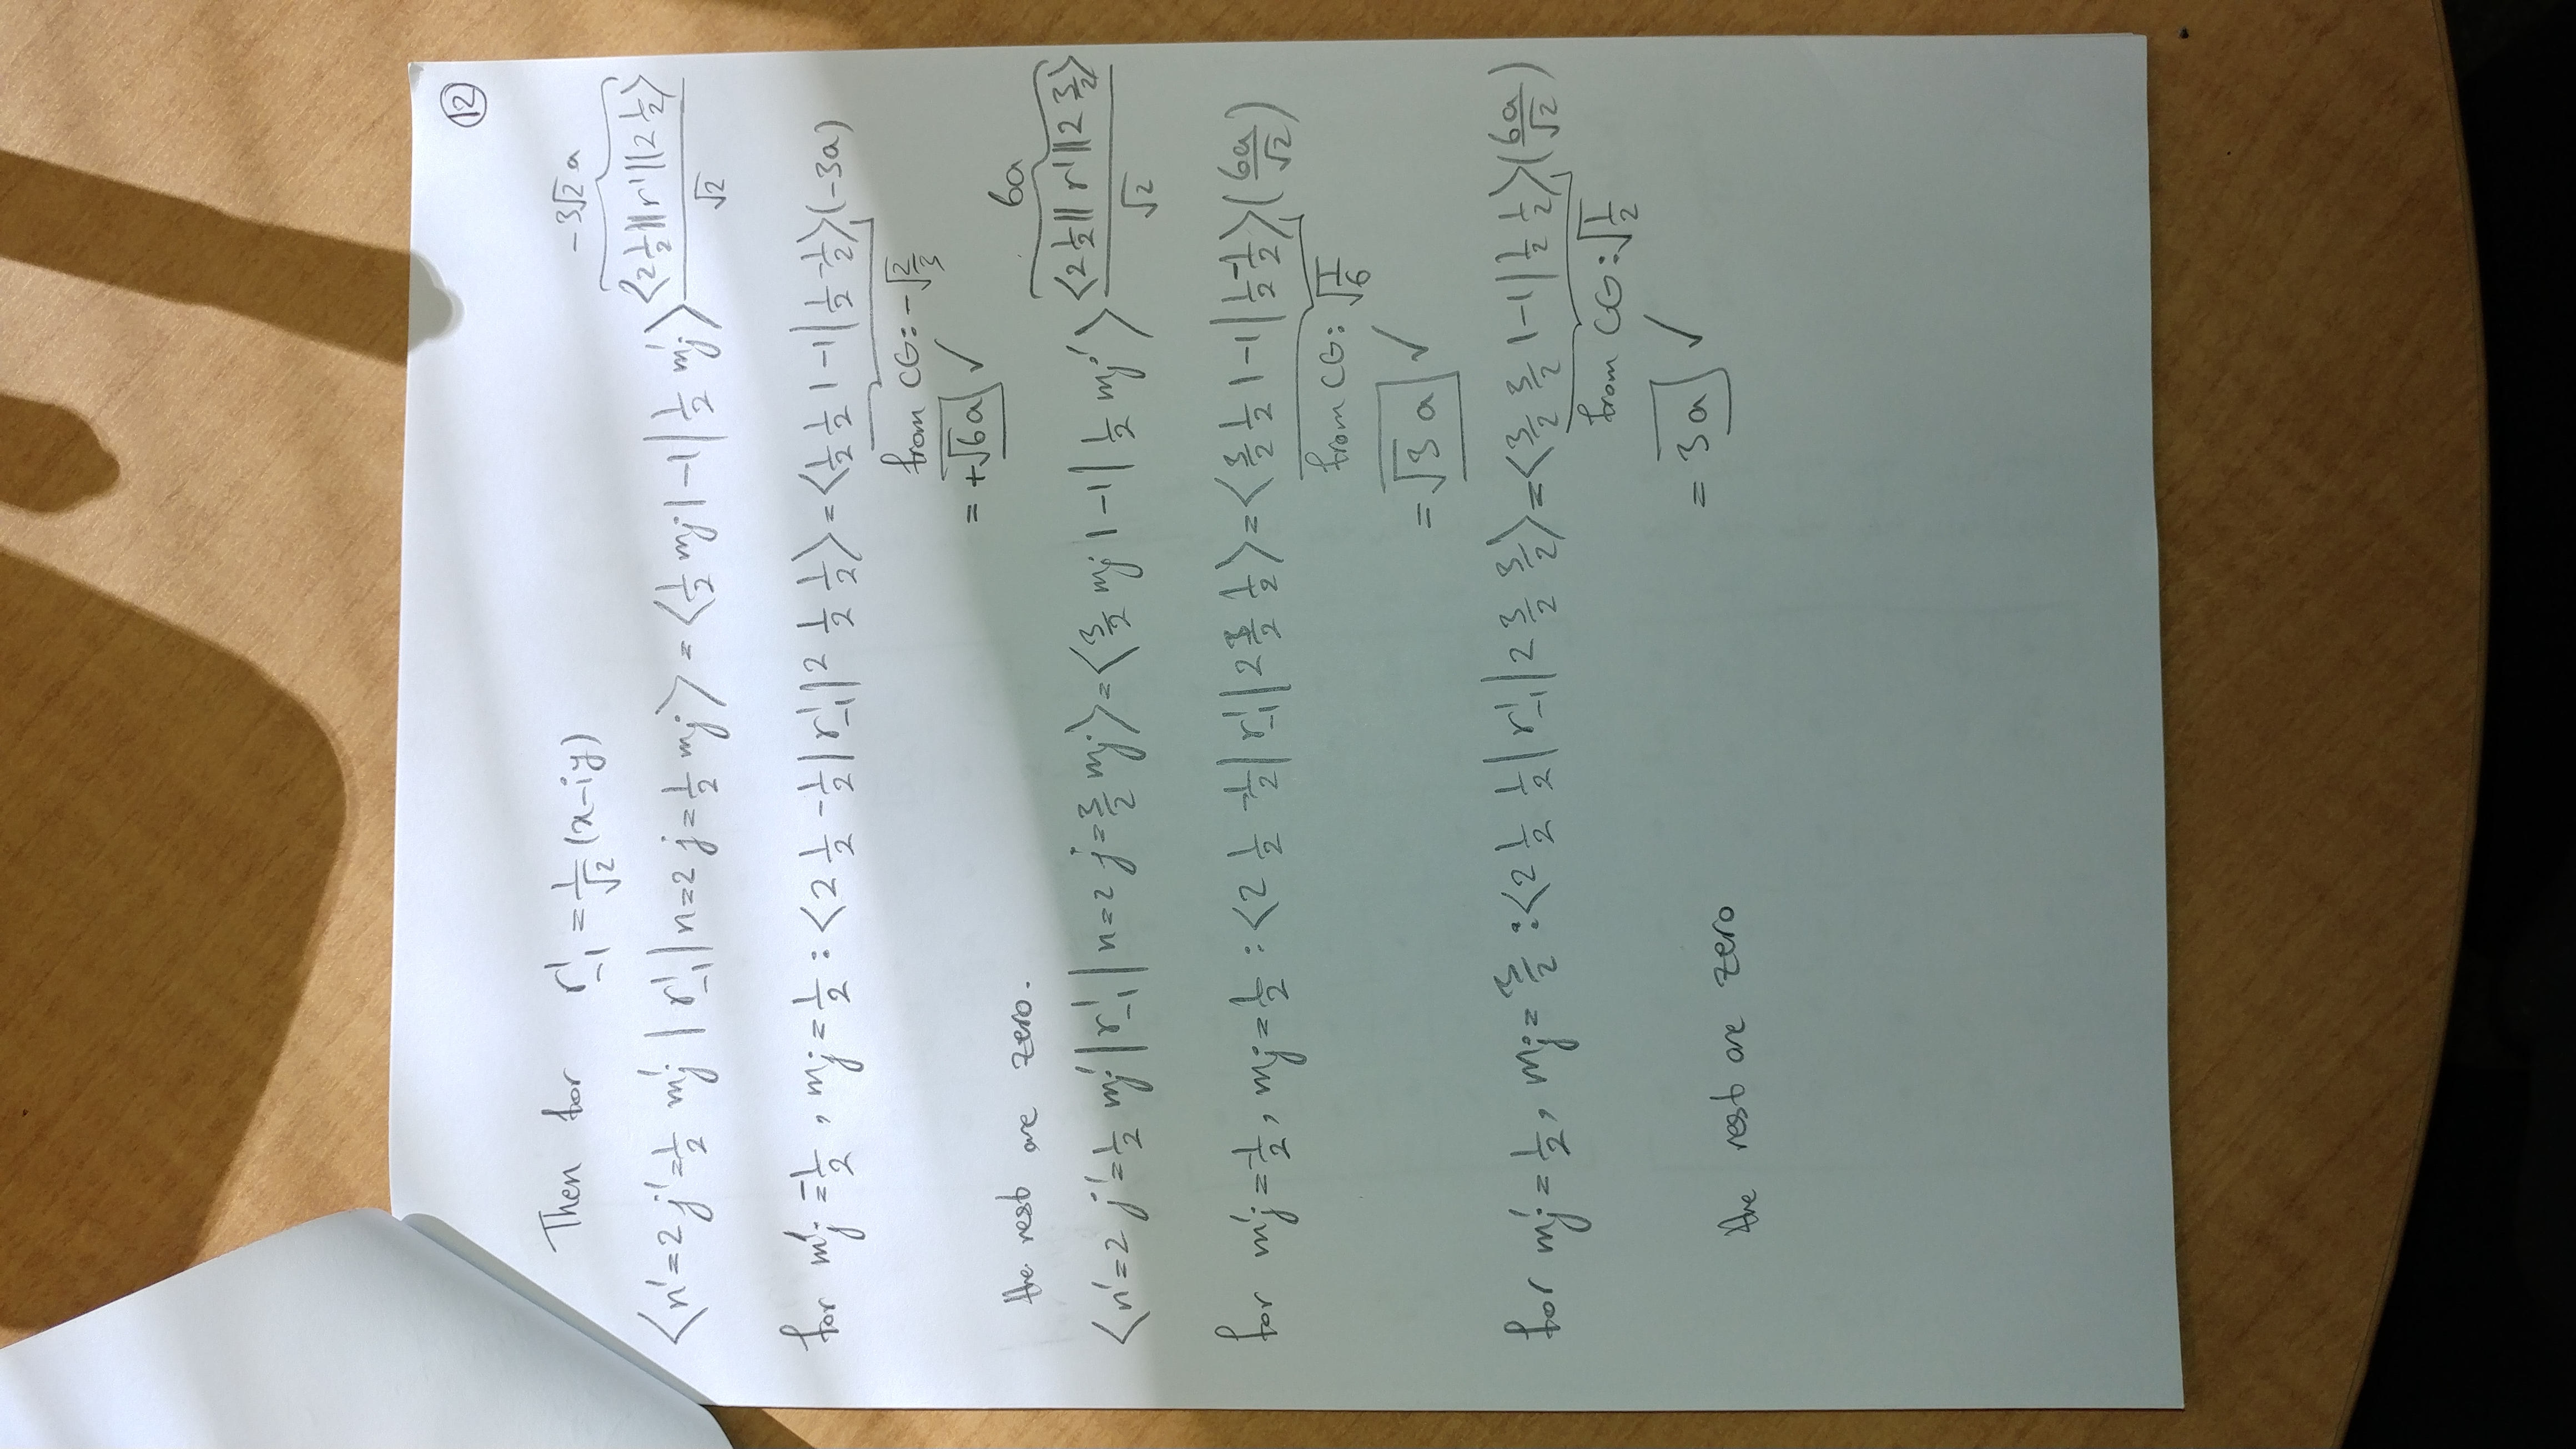 ⑫
Then for r¹₋₁ = 1/√2 (x-iy)
-3√2 a
⟨n'=2 j'=1/2 m'j | r¹₋₁ | n=2 j=1/2 mj⟩ = ⟨1/2 mj 1 -1 | 1/2 m'j⟩ ⟨2 1/2 || r¹ || 2 1/2⟩/√2
for m'j = -1/2 , mj = 1/2 : ⟨2 1/2 -1/2 | r¹₋₁ | 2 1/2 1/2⟩ = ⟨1/2 1/2 1 -1 | 1/2 -1/2⟩ (-3a)
from CG: -√2/3
= +√6 a ✓
the rest are zero.
6a
⟨n'=2 j'=1/2 mj' | r¹₋₁ | n=2 j=3/2 mj⟩ = ⟨3/2 mj 1 -1 | 1/2 mj'⟩ ⟨2 1/2 || r¹ || 2 3/2⟩/√2
for m'j = -1/2, mj = 1/2 : ⟨2 1/2 -1/2 | r¹₋₁ | 2 3/2 1/2⟩ = ⟨3/2 1/2 1 -1 | 1/2 -1/2⟩ (6a/√2)
from CG: √1/6
= √3 a ✓
for m'j = 1/2, mj = 3/2 : ⟨2 1/2 1/2 | r¹₋₁ | 2 3/2 3/2⟩ = ⟨3/2 3/2 1 -1 | 1/2 1/2⟩ (6a/√2)
from CG: √1/2
= 3a ✓
the rest are zero